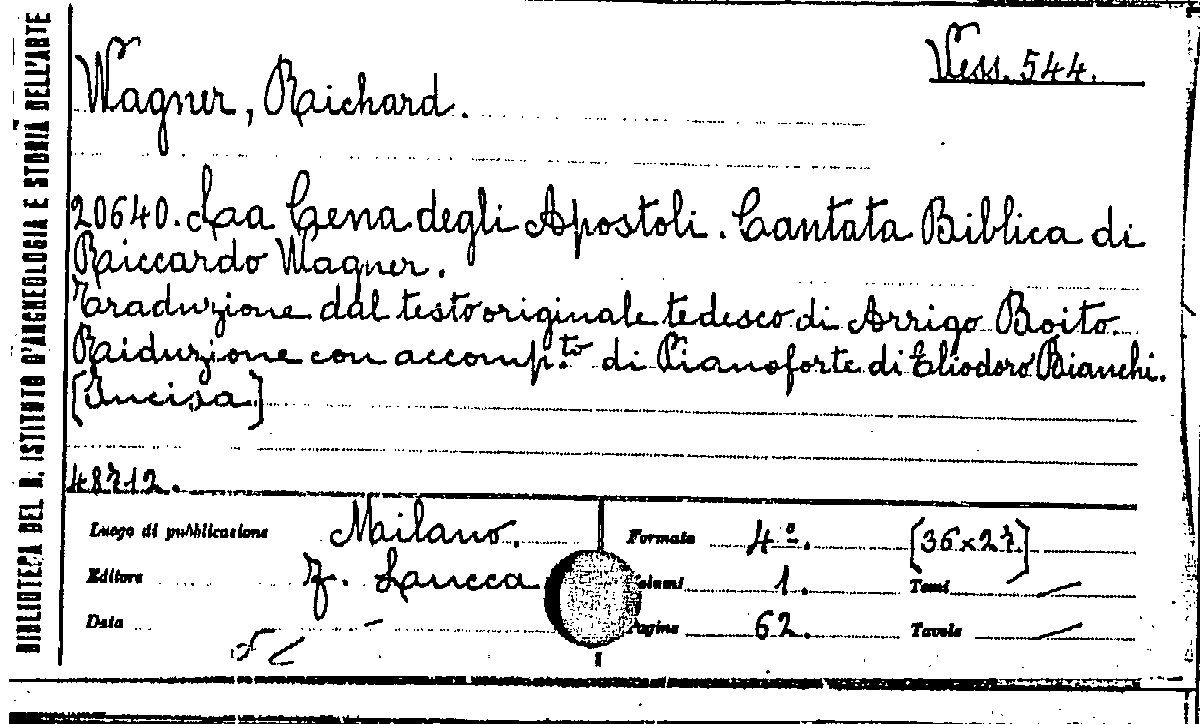 BIBLIOTECA DEL R. ISTITUTO D'ARCHEOLOGIA E STORIA DELL'ARTE
Vess. 544.
Wagner, Richard.
20640. La Cena degli Apostoli. Cantata Biblica di
Riccardo Wagner.
Traduzione dal testo originale tedesco di Arrigo Boito.
Riduzione con accomp.to di Pianoforte di Eliodoro Bianchi.
[Incisa]
48712.
Luogo di pubblicazione Milano. Formato 4º. [36x27]
Editore F. Lucca Volumi 1. Tomi /
Data - Pagine 62. Tavole /